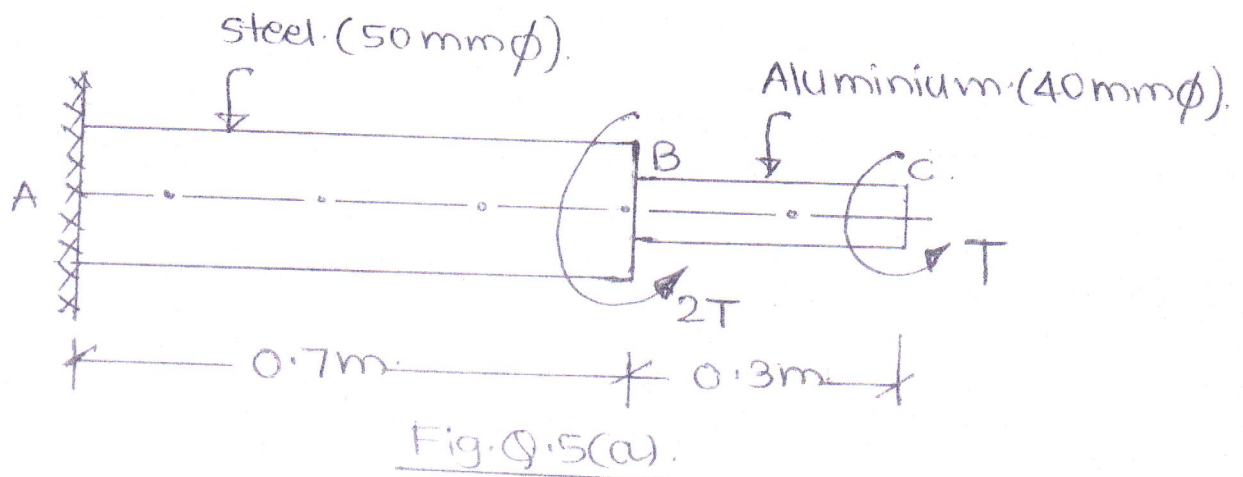 steel. (50mmϕ).
Aluminium. (40mmϕ).
A
B
C.
T
2T
0.7m.
0.3m.
Fig.Q.5(a).